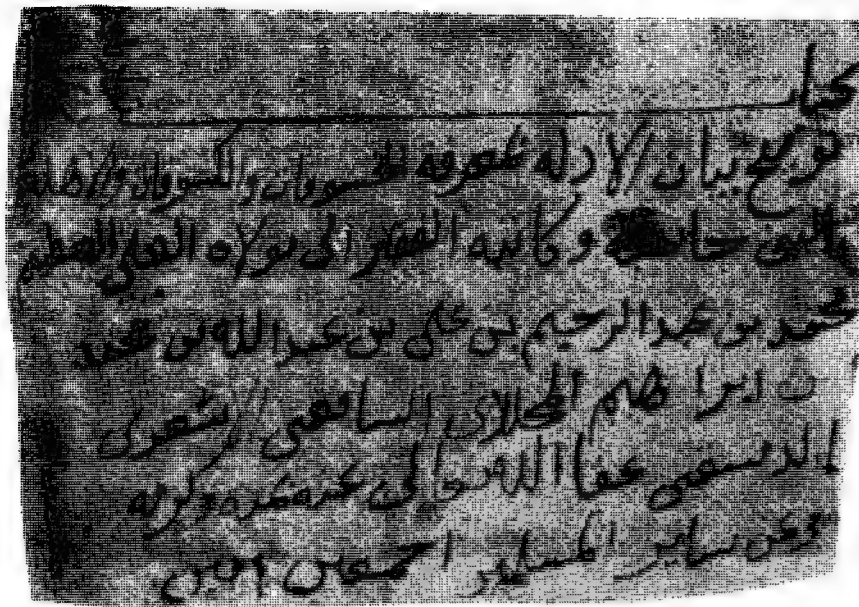 كتاب
توضيح بيان الادله لمعرفه الخسوفات والكسوفات والاهله
وكاتبه الفقير الى مولاه العلي العظيم
محمد بن عبد الرحيم بن علي بن عبد الله بن محمد
بن ابراهيم المخللاتي الشافعي الاشعري
الدمشقي عفا الله تعالى عنه بمنه وكرمه
وعن ساير المسلمين اجمعين امين